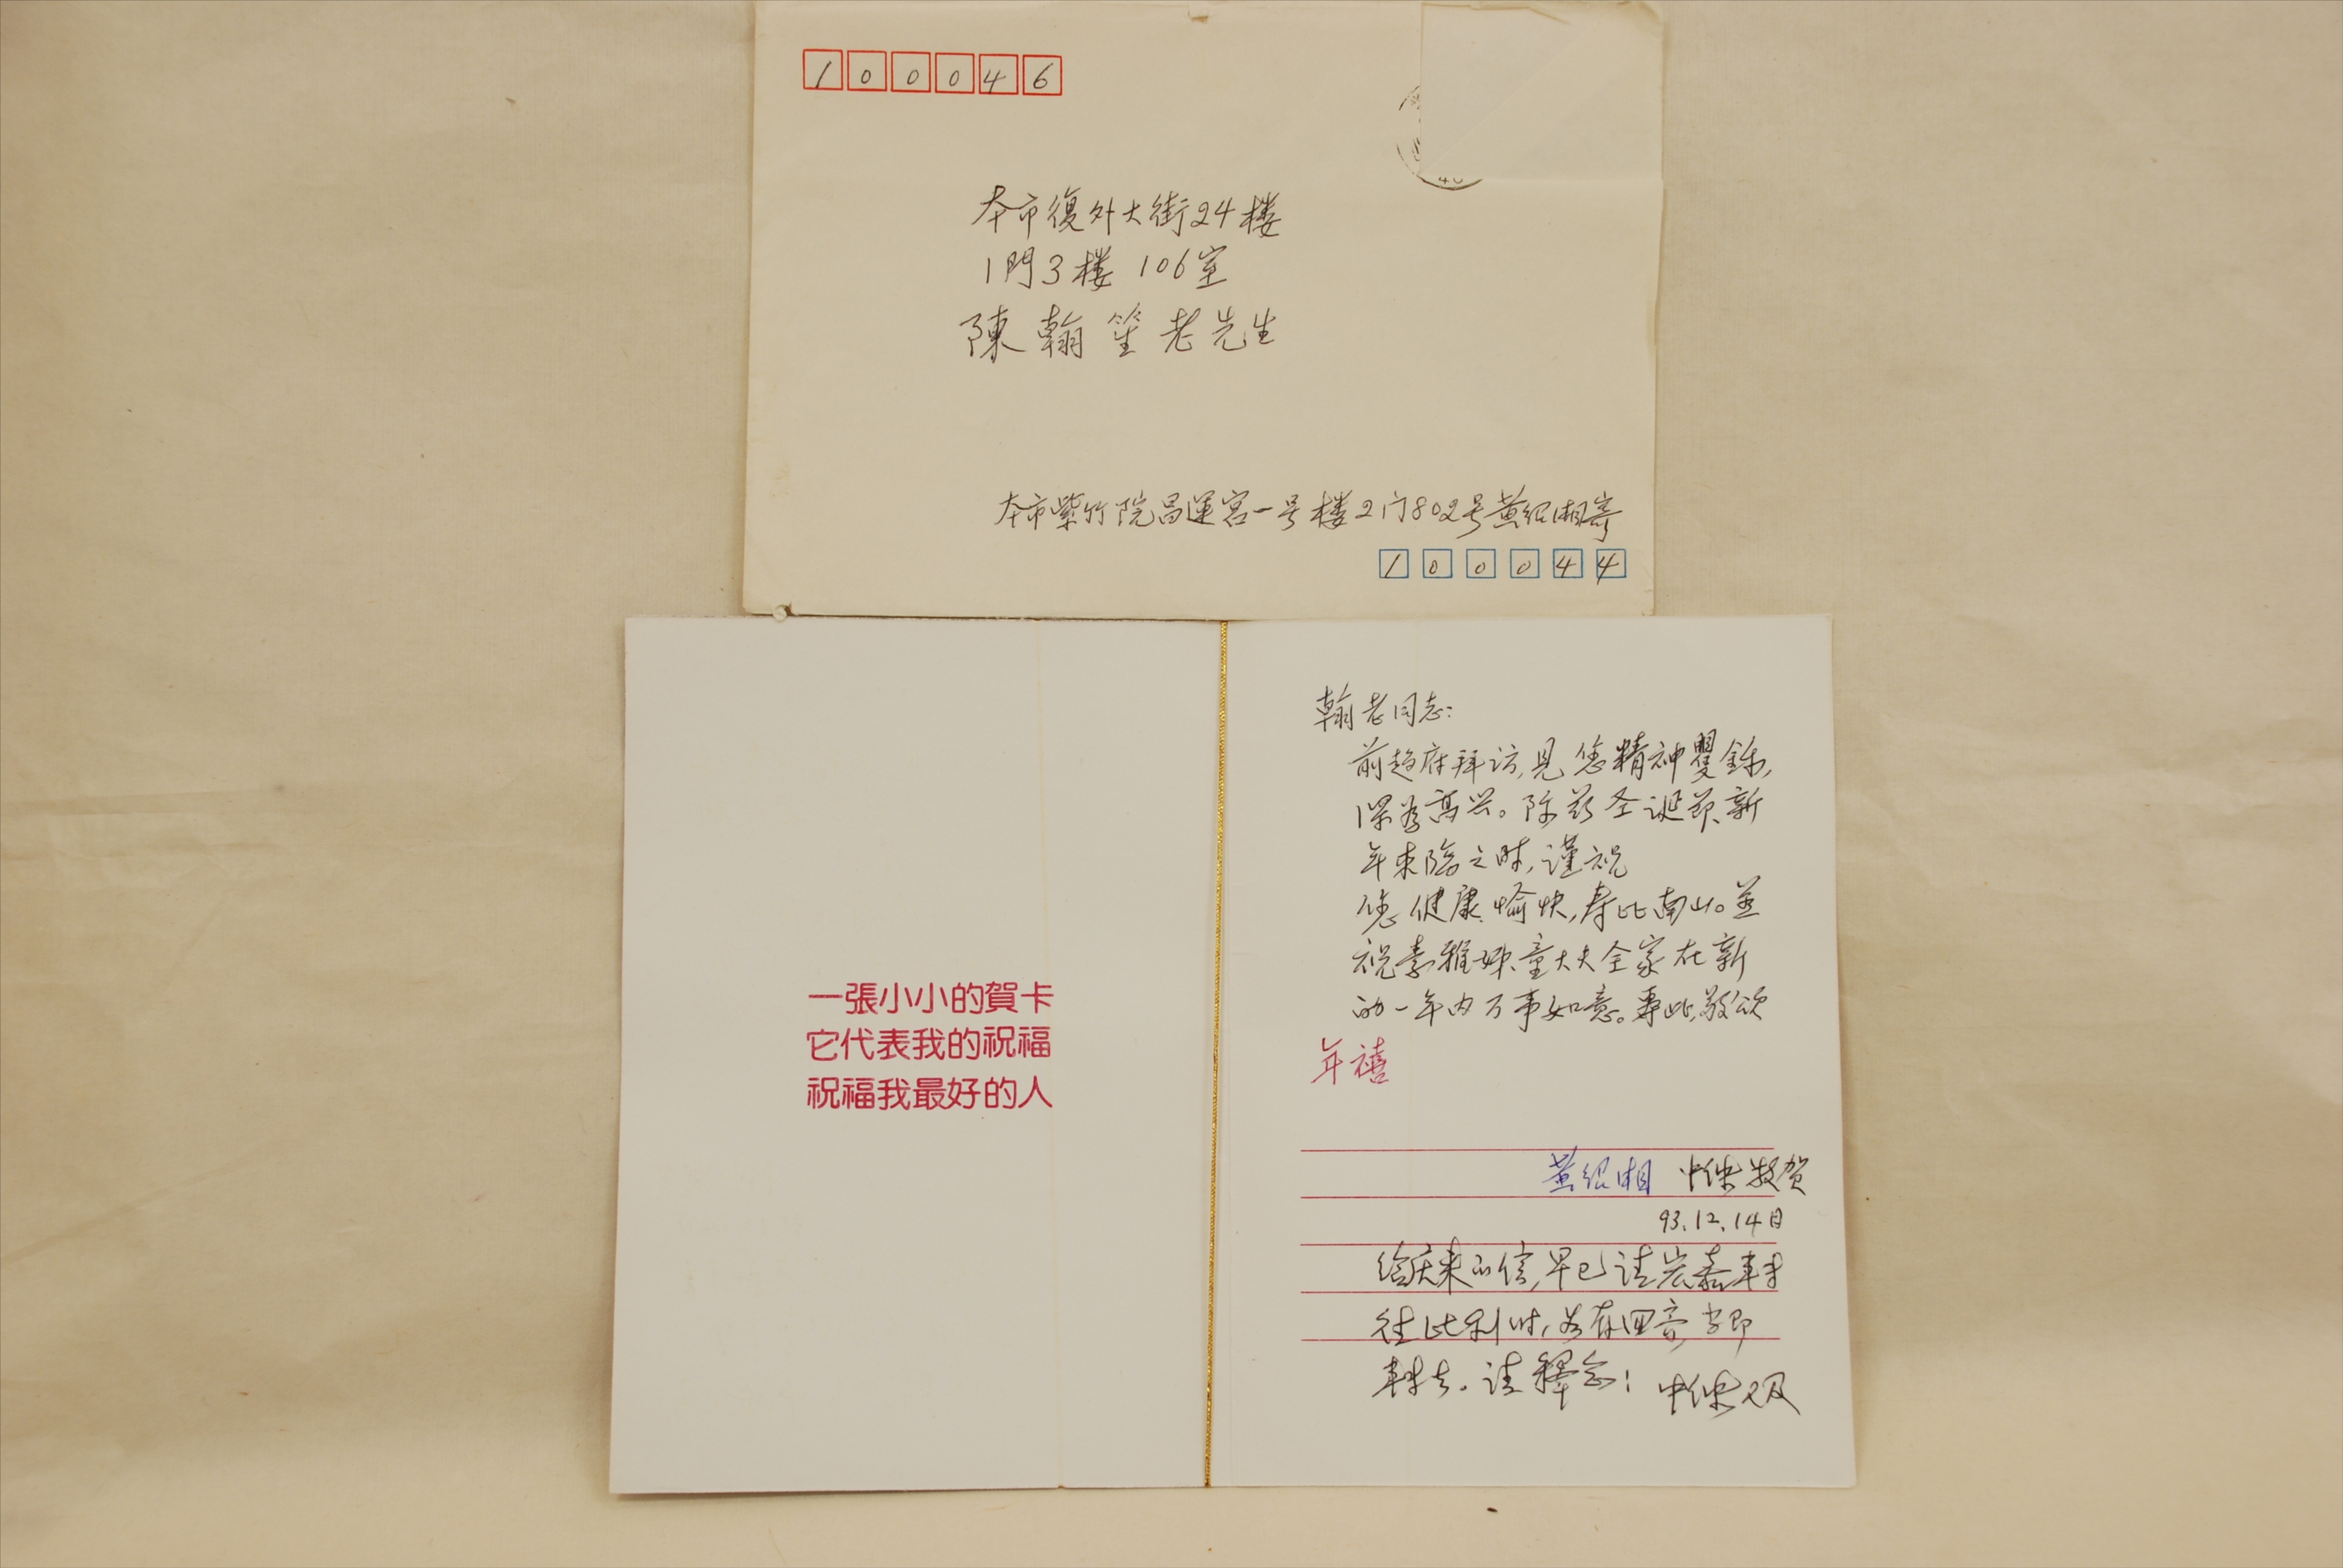 100046
本市復外大街24楼
1門3楼 106室
陳翰笙老先生
本市紫竹院昌運宮一号楼2门802号黄绍湘寄
100044
一張小小的賀卡
它代表我的祝福
祝福我最好的人
翰老同志:
前趋府拜访,見您精神矍鑠,
深為高兴。际兹圣诞节、新
年来臨之时,谨祝
您健康、愉快,寿比南山。並
祝素雅姊、童大夫全家在新
的一年内万事如意。專此,敬颂
年禧
黄绍湘 仲俅敬贺
93.12.14日
给庆来的信,早已请宏嘉轉
往比利时,若有回音,当即
轉去。请釋念! 仲俅又及